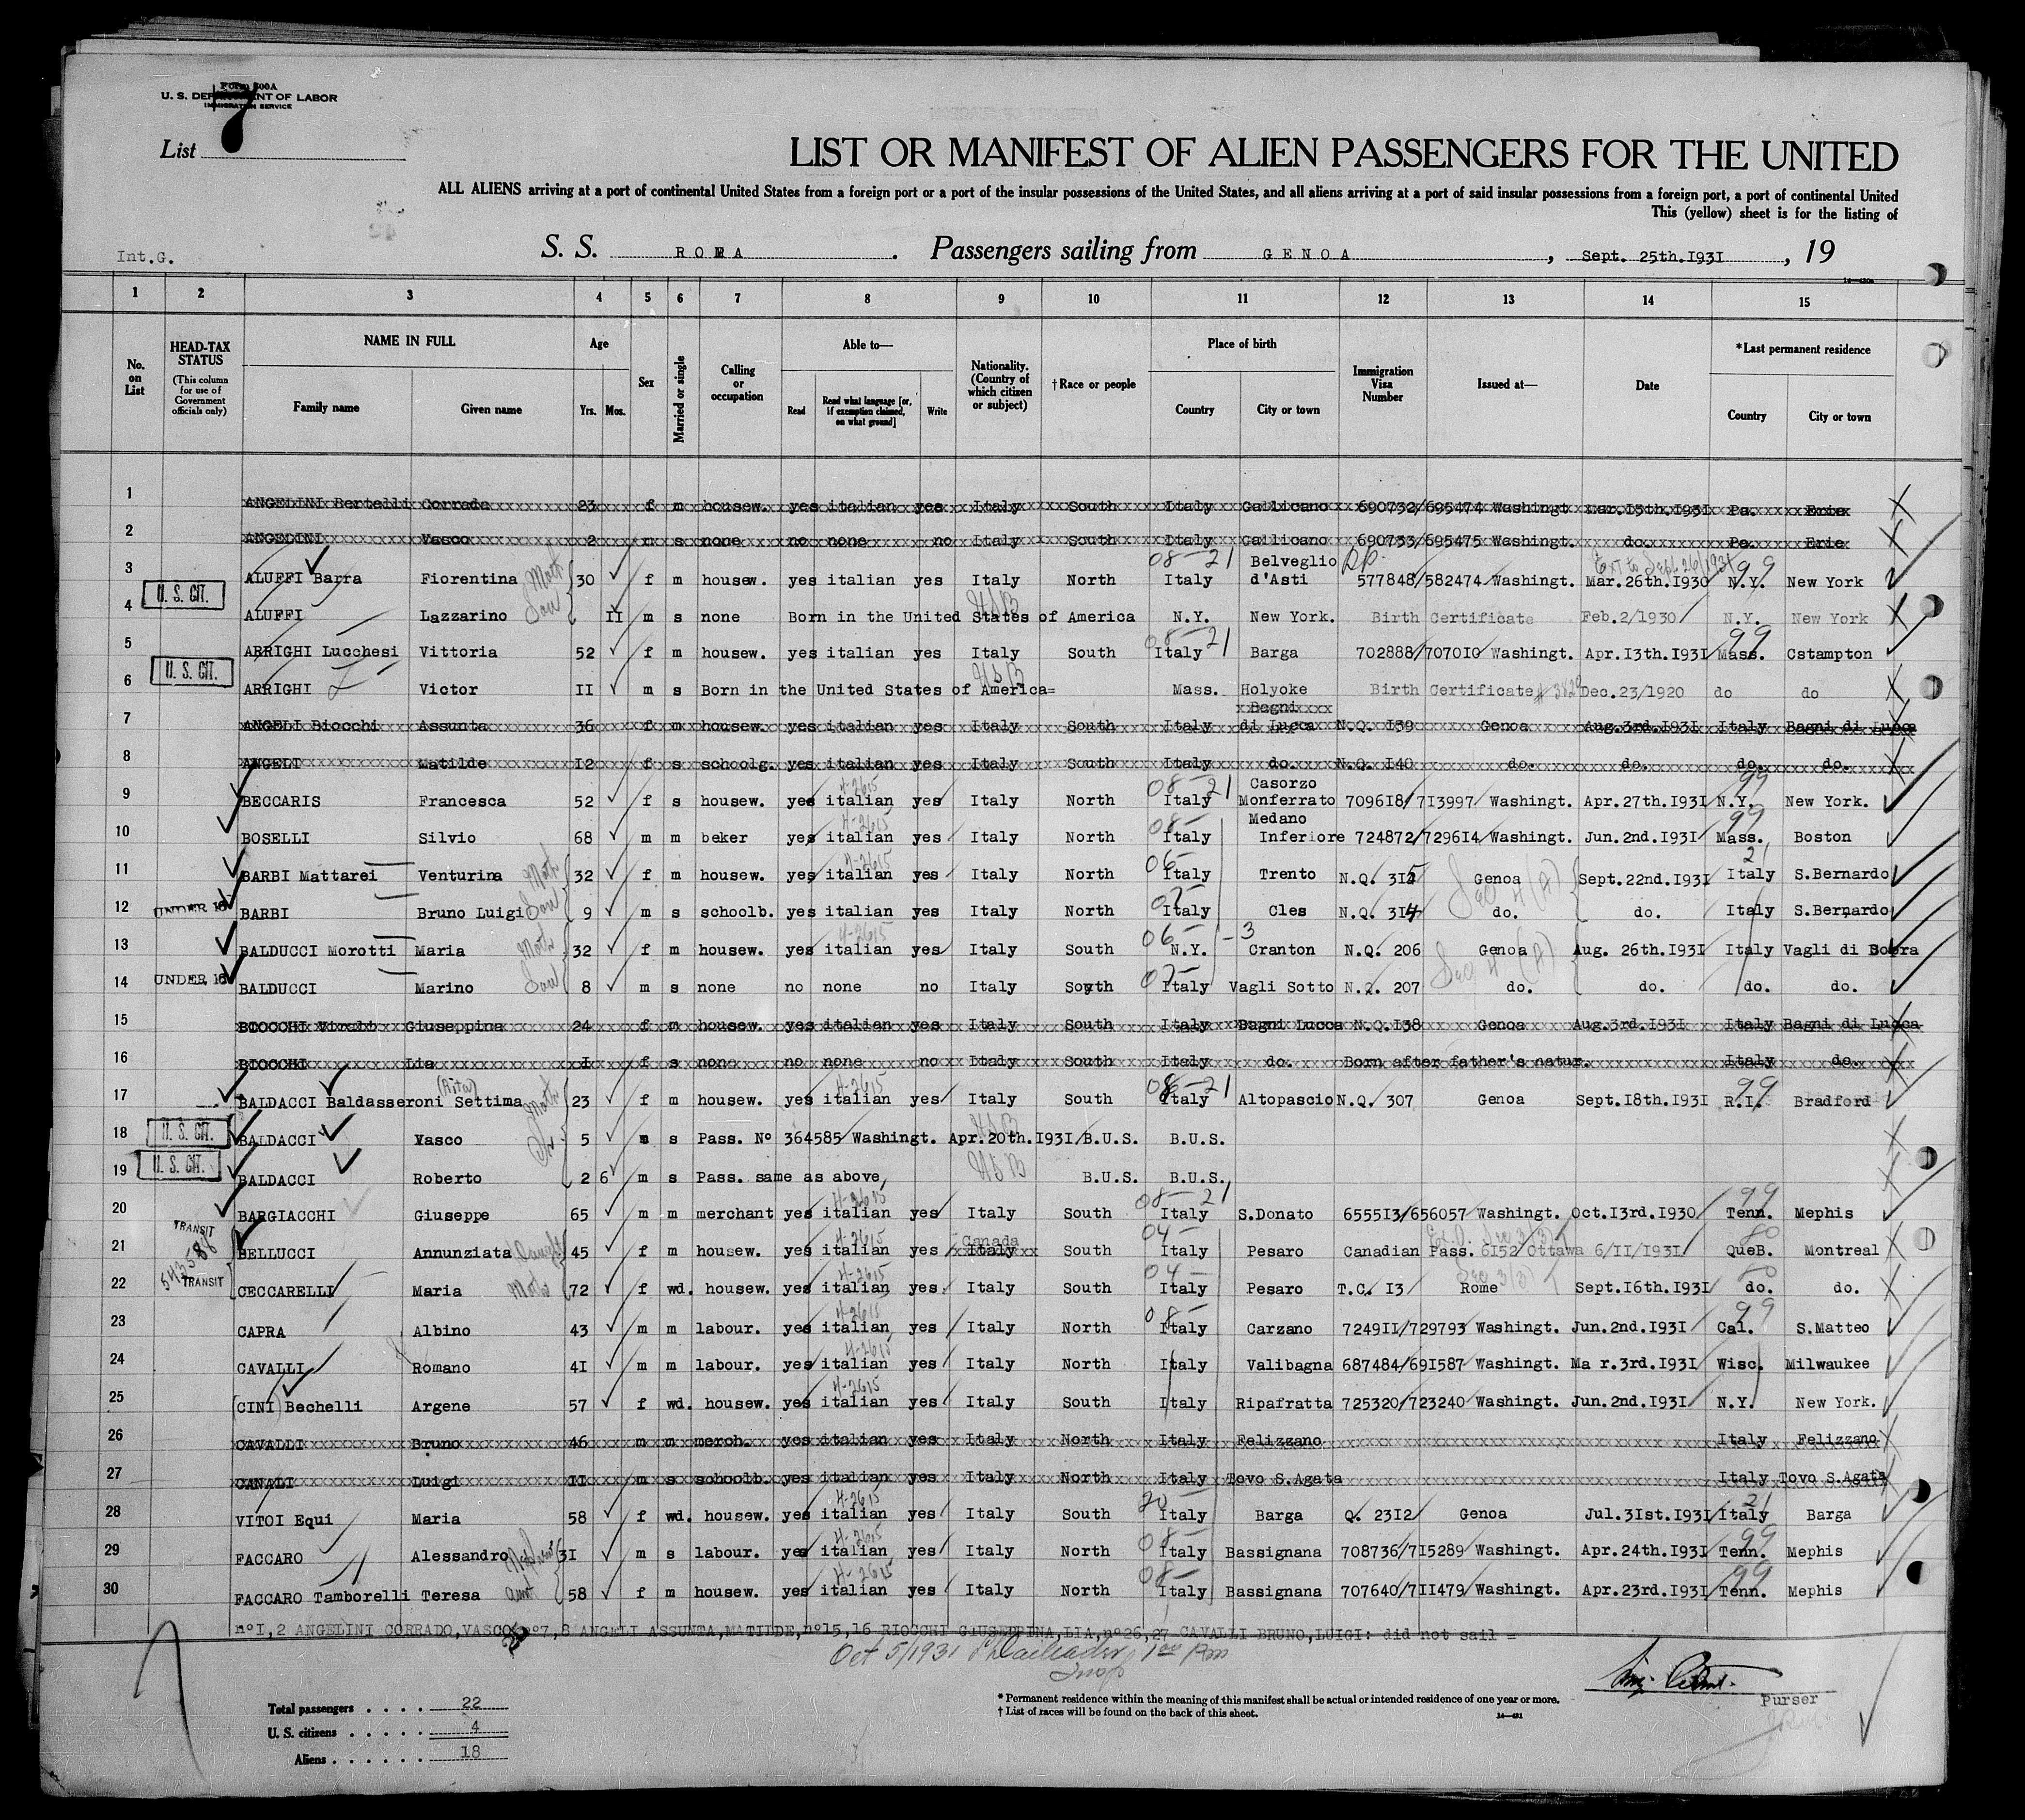 Form 500A
U. S. DEPARTMENT OF LABOR
IMMIGRATION SERVICE
List 7
LIST OR MANIFEST OF ALIEN PASSENGERS FOR THE UNITED
ALL ALIENS arriving at a port of continental United States from a foreign port or a port of the insular possessions of the United States, and all aliens arriving at a port of said insular possessions from a foreign port, a port of continental United
This (yellow) sheet is for the listing of
Int.G. S. S. ROMA . Passengers sailing from GENOA , Sept. 25th.I93I , 19
1 2 3 4 5 6 7 8 9 10 11 12 13 14 15
No. on List HEAD-TAX STATUS (This column for use of Government officials only) NAME IN FULL Family name Given name Age Yrs. Mos. Sex Married or single Calling or occupation Able to— Read Read what language [or, if exemption claimed, on what ground] Write Nationality. (Country of which citizen or subject) † Race or people Place of birth Country City or town Immigration Visa Number Issued at— Date *Last permanent residence Country City or town
1 ANGELINI Bertelli Corrada 23 f m housew. yes italian yes Italy South Italy Gallicano 690732/695474 Washingt Mar.I3th.I93I Pa. Erie
2 ANGELINI Vasco 2 m s none no none no Italy South Italy Gallicano 690733/695475 Washingt. do. Pa. Erie
3 ALUFFI Barra Fiorentina Moth 30 f m housew. yes italian yes Italy North 08-21 Italy Belveglio d'Asti 577848/582474 Washingt. Ext to Sept 26/1931 Mar.26th.I930 99 N.Y. New York
4 U. S. CIT. ALUFFI Lazzarino Son II m s none Born in the United States of America USB N.Y. New York. Birth Certificate Feb.2/1930 N.Y. New York
5 ARRIGHI Lucchesi Vittoria 52 f m housew. yes italian yes Italy South 08-21 Italy Barga 702888/7070I0 Washingt. Apr.I3th.I93I 99 Mass. Cstampton
6 U. S. CIT. ARRIGHI Victor II m s Born in the United States of America= USB Mass. Holyoke Birth Certificate Dec.23/1920 do do
7 ANGELI Biocchi Assunta 36 f m housew. yes italian yes Italy South Italy Bagni di Lucca N.Q. I39 Genoa Aug.3rd.I93I Italy Bagni di Lucca
8 ANGELI Matilde I2 f s schoolg. yes italian yes Italy South Italy do. N.Q. I40 do. do. do. do.
9 BECCARIS Francesca 52 f s housew. yes italian yes 4-2615 Italy North 08-21 Italy Casorzo Monferrato 7096I8/7I3997 Washingt. Apr.27th.I93I 99 N.Y. New York.
10 BOSELLI Silvio 68 m m beker yes italian yes 4-2615 Italy North 08- Italy Medano Inferiore 724872/7296I4 Washingt. Jun.2nd.I93I 99 Mass. Boston
11 BARBI Mattarei Venturina Moth 32 f m housew. yes italian yes 4-2615 Italy North 06- Italy Trento N.Q. 3I5 Genoa Sept.22nd.I93I 21 Italy S.Bernardo
12 UNDER 16 BARBI Bruno Luigi Son 9 m s schoolb. yes italian yes Italy North 07- Italy Cles N.Q. 3I4 do. do. Italy S.Bernardo
13 BALDUCCI Morotti Maria Moth 32 f m housew. yes italian yes 4-2615 Italy South 06- N.Y. -3 Cranton N.Q. 206 Genoa Aug. 26th.I93I Italy Vagli di Sopra
14 UNDER 16 BALDUCCI Marino Son 8 m s none no none no Italy South 07- Italy Vagli Sotto N.Q. 207 do. do. do. do.
15 BIOCCHI Vivaldi Giuseppina 24 f m housew. yes italian yes Italy South Italy Bagni Lucca N.Q.I38 Genoa Aug.3rd.I93I Italy Bagni di Lucca
16 BIOCCHI Lia I f s none no none no Italy South Italy do. Born after father's natur. Italy do.
17 BALDACCI Baldasseroni Settima (Rita) Moth 23 f m housew. yes italian yes 4-2615 Italy South 08-21 Italy Altopascio N.Q. 307 Genoa Sept.I8th.I93I 99 R.I. Bradford
18 U. S. CIT. BALDACCI Vasco 5 m s Pass. Nº 364585 Washingt. Apr.20th.I93I USB B.U.S. B.U.S.
19 U. S. CIT. BALDACCI Roberto 2 6 m s Pass. same as above, USB B.U.S. B.U.S.
20 BARGIACCHI Giuseppe 65 m m merchant yes italian yes 4-2615 Italy South 08-21 Italy S.Donato 6555I3/656057 Washingt. Oct.I3rd.I930 99 Tenn. Mephis
21 TRANSIT BELLUCCI Annunziata Daught 45 f m housew. yes italian yes 4-2615 Canada Italy South 04- Italy Pesaro Canadian Pass. 6I52 Ottawa 6/II/I93I 80 QueB. Montreal
22 TRANSIT CECCARELLI Maria Moth 72 f wd. housew. yes italian yes 4-2615 Italy South 04- Italy Pesaro T.C. I3 Rome Sept.I6th.I93I 80 do. do.
23 CAPRA Albino 43 m m labour. yes italian yes 4-2615 Italy North 08- Italy Carzano 7249II/729793 Washingt. Jun.2nd.I93I 99 Cal. S.Matteo
24 CAVALLI Romano 4I m m labour. yes italian yes 4-2615 Italy North Italy Valibagna 687484/69I587 Washingt. Ma r.3rd.I93I Wisc. Milwaukee
25 CINI Bechelli Argene 57 f wd. housew. yes italian yes 4-2615 Italy South Italy Ripafratta 725320/723240 Washingt. Jun.2nd.I93I N.Y. New York.
26 CAVALLI Bruno 46 m m merch. yes italian yes Italy North Italy Felizzano Italy Felizzano
27 CANALI Luigi II m s schoolb. yes italian yes Italy North Italy Tovo S.Agata Italy Tovo S.Agata
28 VITOI Equi Maria 58 f wd. housew. yes italian yes 4-2615 Italy South 20 Italy Barga Q. 23I2 Genoa Jul.3Ist.I93I 21 Italy Barga
29 FACCARO Alessandro 3I m s labour. yes italian yes 4-2615 Italy North 08- Italy Bassignana 708736/7I5289 Washingt. Apr.24th.I93I 99 Tenn. Mephis
30 FACCARO Tamborelli Teresa aunt 58 f m housew. yes italian yes 4-2615 Italy North 08- Italy Bassignana 707640/7II479 Washingt. Apr.23rd.I93I 99 Tenn. Mephis
nºI,2 ANGELINI CORRADO,VASCO, nº7,8 ANGELI ASSUNTA,MATILDE,nºI5,I6 BIOCCHI GIUSEPPINA,LIA,nº26,27 CAVALLI BRUNO,LUIGI: did not sail =
Oct 5/1931 1 00 Pm
Insp
Purser
Total passengers . . . . 22
U. S. citizens . . . . . 4
Aliens . . . . . . 18
* Permanent residence within the meaning of this manifest shall be actual or intended residence of one year or more.
† List of races will be found on the back of this sheet.
14—431